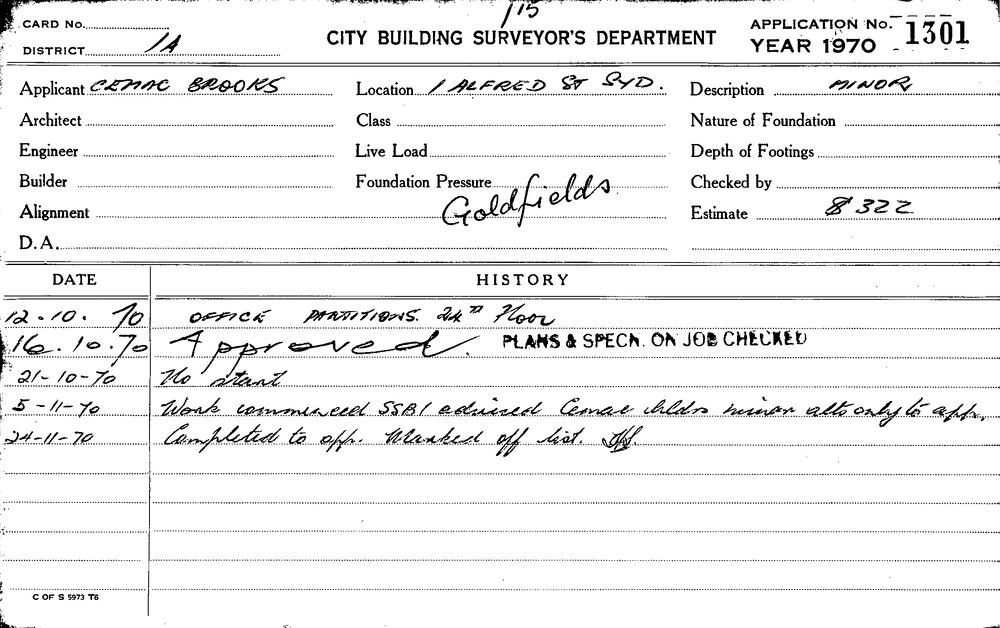 115
CARD No.
DISTRICT 1A
CITY BUILDING SURVEYOR'S DEPARTMENT
APPLICATION No. 1301
YEAR 1970
Applicant CEMAC BROOKS Location 1 ALFRED ST SYD. Description MINOR
Architect Class Nature of Foundation
Engineer Live Load Depth of Footings
Builder Foundation Pressure Checked by
Alignment Goldfields Estimate $322
D.A.
DATE HISTORY
12.10.70 OFFICE PARTITIONS. 24TH Floor
16.10.70 Approved. PLANS & SPECN. ON JOB CHECKED
21-10-70 No start
5-11-70 Work commenced SSB1 advised Cemac bldrs minor alts only to app.
24-11-70 Completed to app. Marked off list.
C OF S 5973 T6